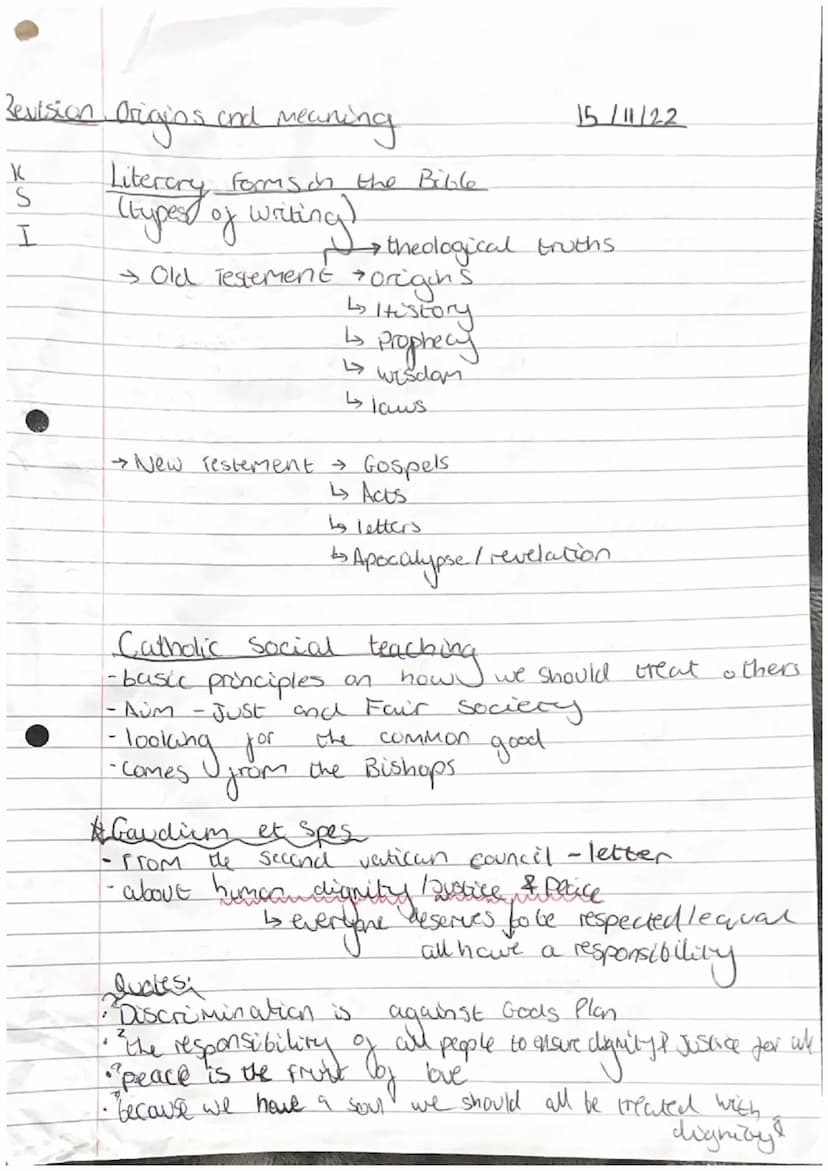 Revision Origins and meaning 15/11/22
K
S
I
Literary forms in the Bible
(types of writing)
→ theological truths
→ Old Testement → origins
↳ History
↳ Prophecy
↳ wisdom
↳ laws
→ New Testement → Gospels
↳ Acts
↳ letters
↳ Apocalypse / revelation
Catholic social teaching
- basic principles on how we should treat others
- Aim - Just and Fair society
- looking for the common good
- comes from the Bishops
* Gaudium et Spes
- From the second vatican council - letter
- about human dignity / justice & Peace
↳ everyone deserves to be respected / equal
all have a responsibility
Quotes:
· "Discrimination is against Gods Plan
· "the responsibility of all people to ensure dignity & justice for all
· "peace is the fruit of love
· "because we have a soul we should all be treated with
dignity"